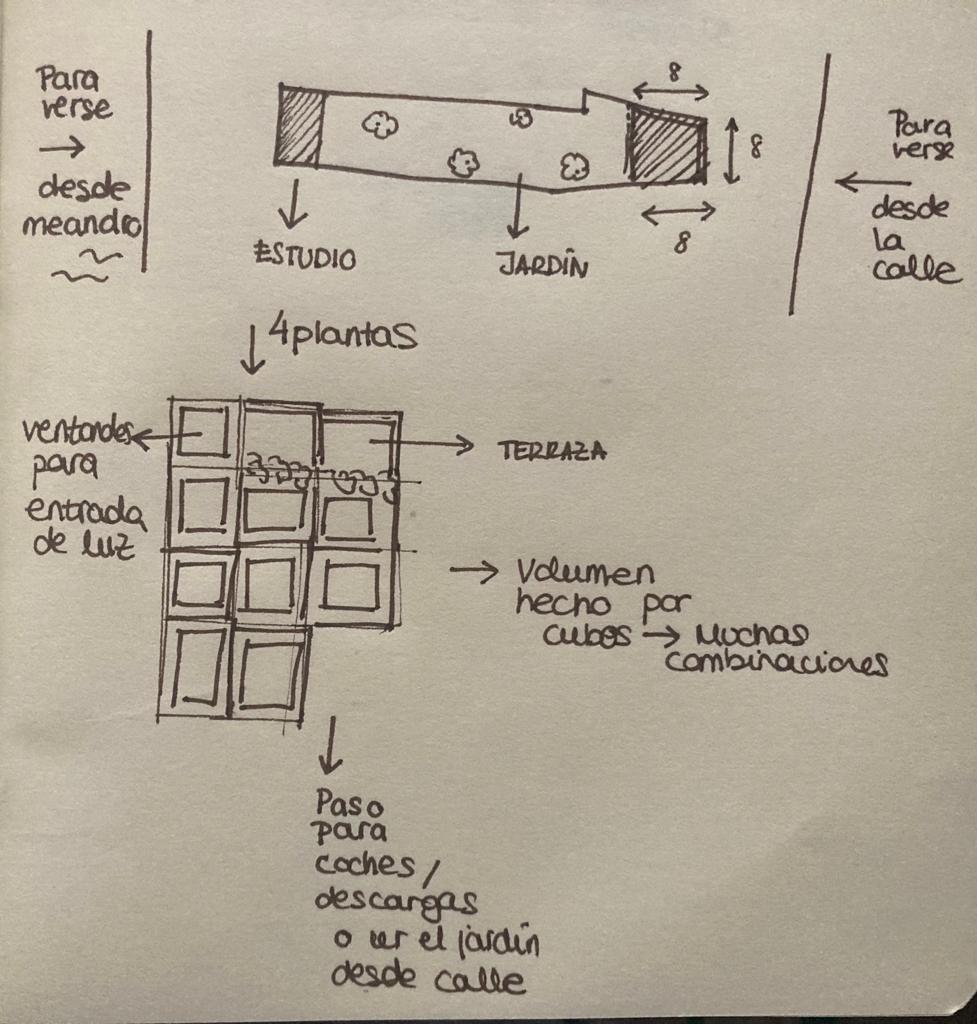 Para
verse
desde
meandro
8
8
8
Para
verse
desde
la
calle
ESTUDIO
JARDÍN
4 plantas
ventanales
para
entrada
de luz
TERRAZA
Volumen
hecho por
cubos → Muchas
combinaciones
Paso
para
coches /
descargas
o ver el jardín
desde calle